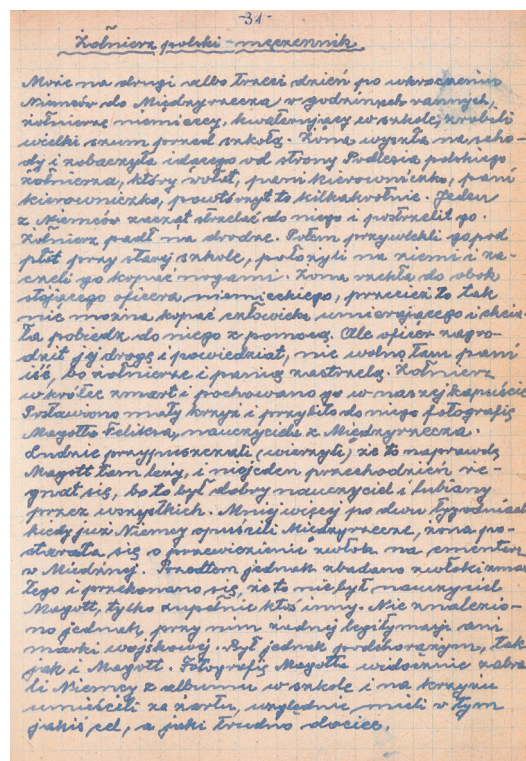 -31-
Żołnierz polski - męczennik
Może na drugi albo trzeci dzień po wkroczeniu
Niemców do Międzyrzecza, w godzinach rannych,
żołnierze niemieccy, kwaterujący w szkole, zrobili
wielki szum przed szkołą. Żona wyszła na scho-
dy i zobaczyła idącego od strony Podlesia polskiego
żołnierza, który wołał, pani kierowniczko, pani
kierowniczko, powtórzył to kilkakrotnie. Jeden
z Niemców zaczął strzelać do niego i postrzelił go.
Żołnierz padł na drodze. Potem przywlekli go pod
płot przy starej szkole, położyli na ziemi i za-
częli go kopać nogami. Żona rzekła do obok
stojącego oficera, niemieckiego, przecież to tak
nie można kopać człowieka umierającego i chcia-
ła pobiedz do niego z pomocą. Ale oficer zagro-
dził jej drogę i powiedział, nie wolno tam pani
iść, bo żołnierze i panią zastrzelą. Żołnierz
wkrótce zmarł i pochowano go w naszej kapuście
Postawiono mały krzyż i przybito do niego fotografię
Magotta Feliksa, nauczyciela z Międzyrzecza.
Ludzie przypuszczali (wierzyli) że to naprawdę
Magott tam leży, i niejeden przechodzień że-
gnał się, bo to był dobry nauczyciel i lubiany
przez wszystkich. Mniej więcej po dwu tygodniach
kiedy już Niemcy opuścili Międzyrzecze, żona po-
starała się o przewiezienie zwłok na cmentarz
w Miedźnej. Przedtem jednak zbadano zwłoki zmar
łego i przekonano się, że to nie był nauczyciel
Magott, tylko zupełnie ktoś inny. Nie znalezio-
no jednak, przy nim żadnej legitymacji ani
marki wojskowej. Był jednak podchorążym, tak
jak i Magott. Fotografię Magotta widocznie zabra-
li Niemcy z albumu w szkole i na krzyżu
umieścili za żartu, względnie mieli w tym
jakiś cel, a jaki trudno dociec.